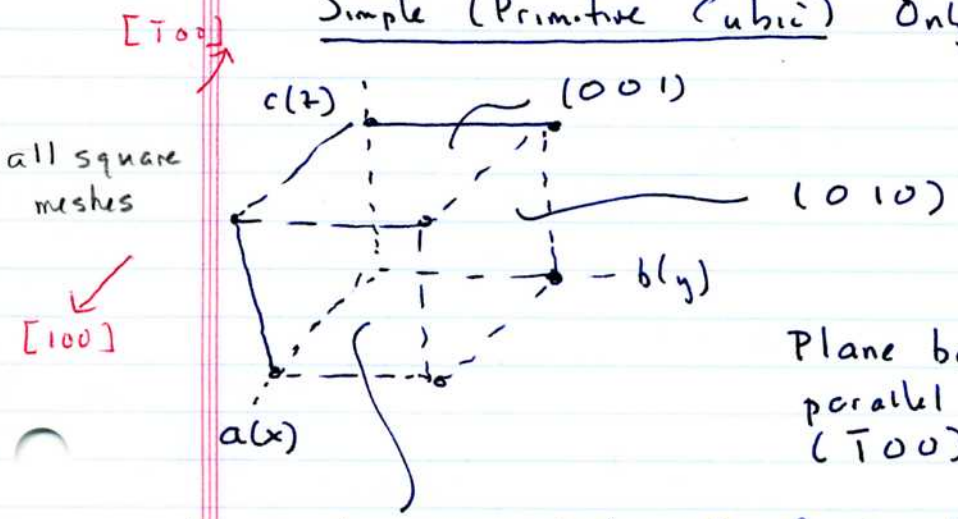 Simple (Primitive Cubic) Onl
[1̄00]
c(z)
(001)
all square
meshes
(010)
b(y)
[100]
Plane b
parallel
a(x)
(1̄00)